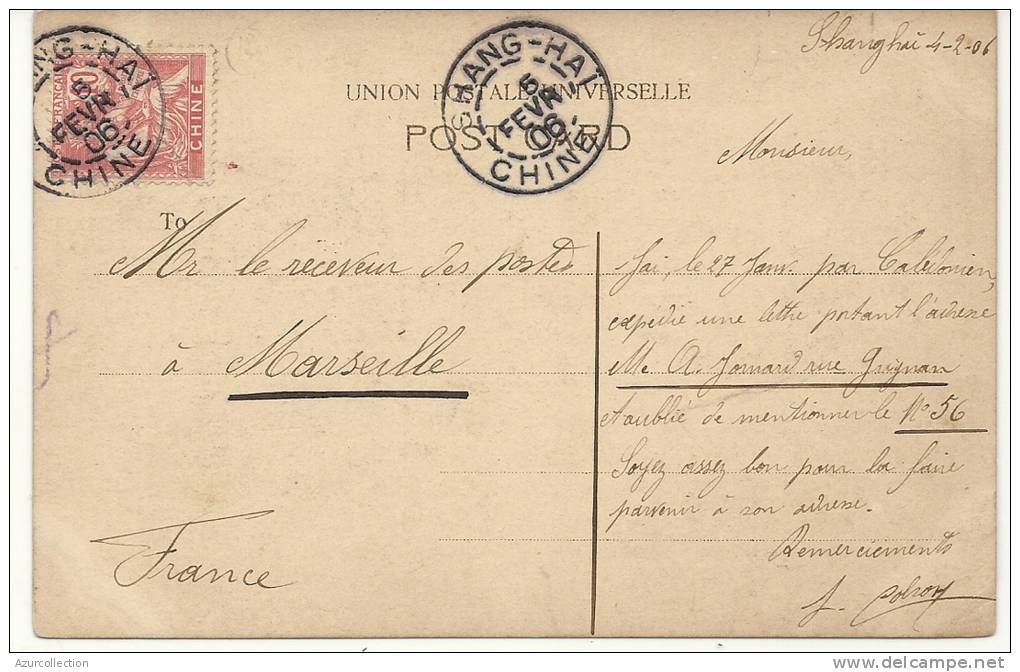 Shanghaï 4-2-06
SHANG-HAÏ
5
FEVR
06
CHINE
SHANG-HAÏ
5
FEVR
06
CHINE
CHINE
UNION POSTALE UNIVERSELLE
POST CARD
To
Mr le receveur des postes
à Marseille
France
Monsieur,
J'ai, le 27 Janv. par Calédonien,
expédié une lettre portant l'adresse
Mr A. Jornard rue Grignan
et oublié de mentionner le No 56
Soyez assez bon pour la faire
parvenir à son adresse.
Remerciements
J.
Azurcollection
www.delcampe.net